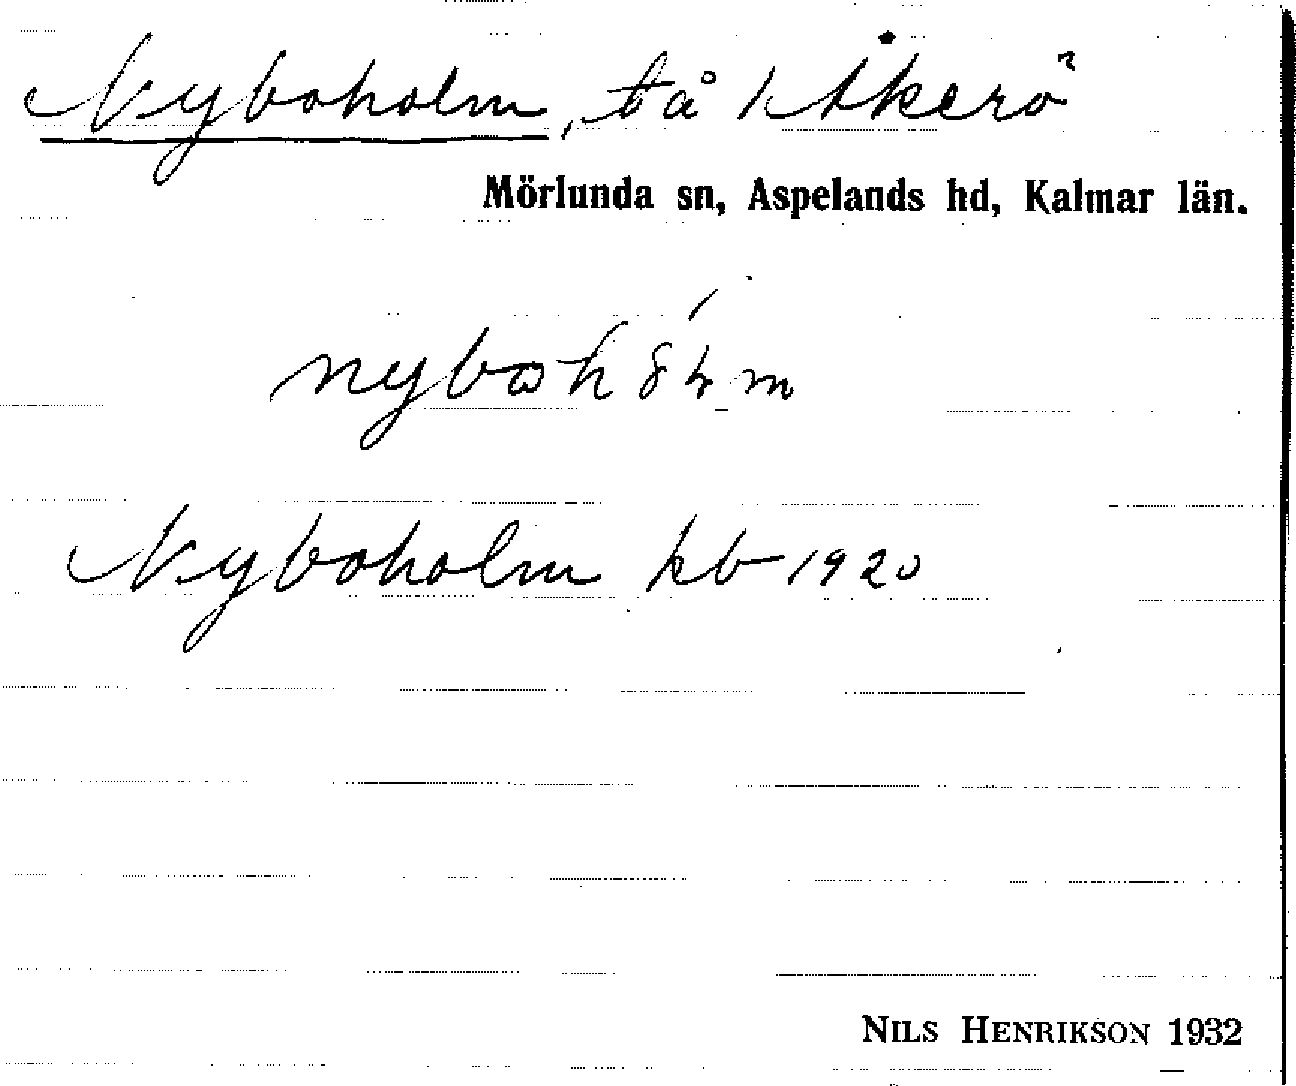 Nyboholm, tå 1 Åkerö
Mörlunda sn, Aspelands hd, Kalmar län.
Nyboholm kb 1920
NILS HENRIKSON 1932